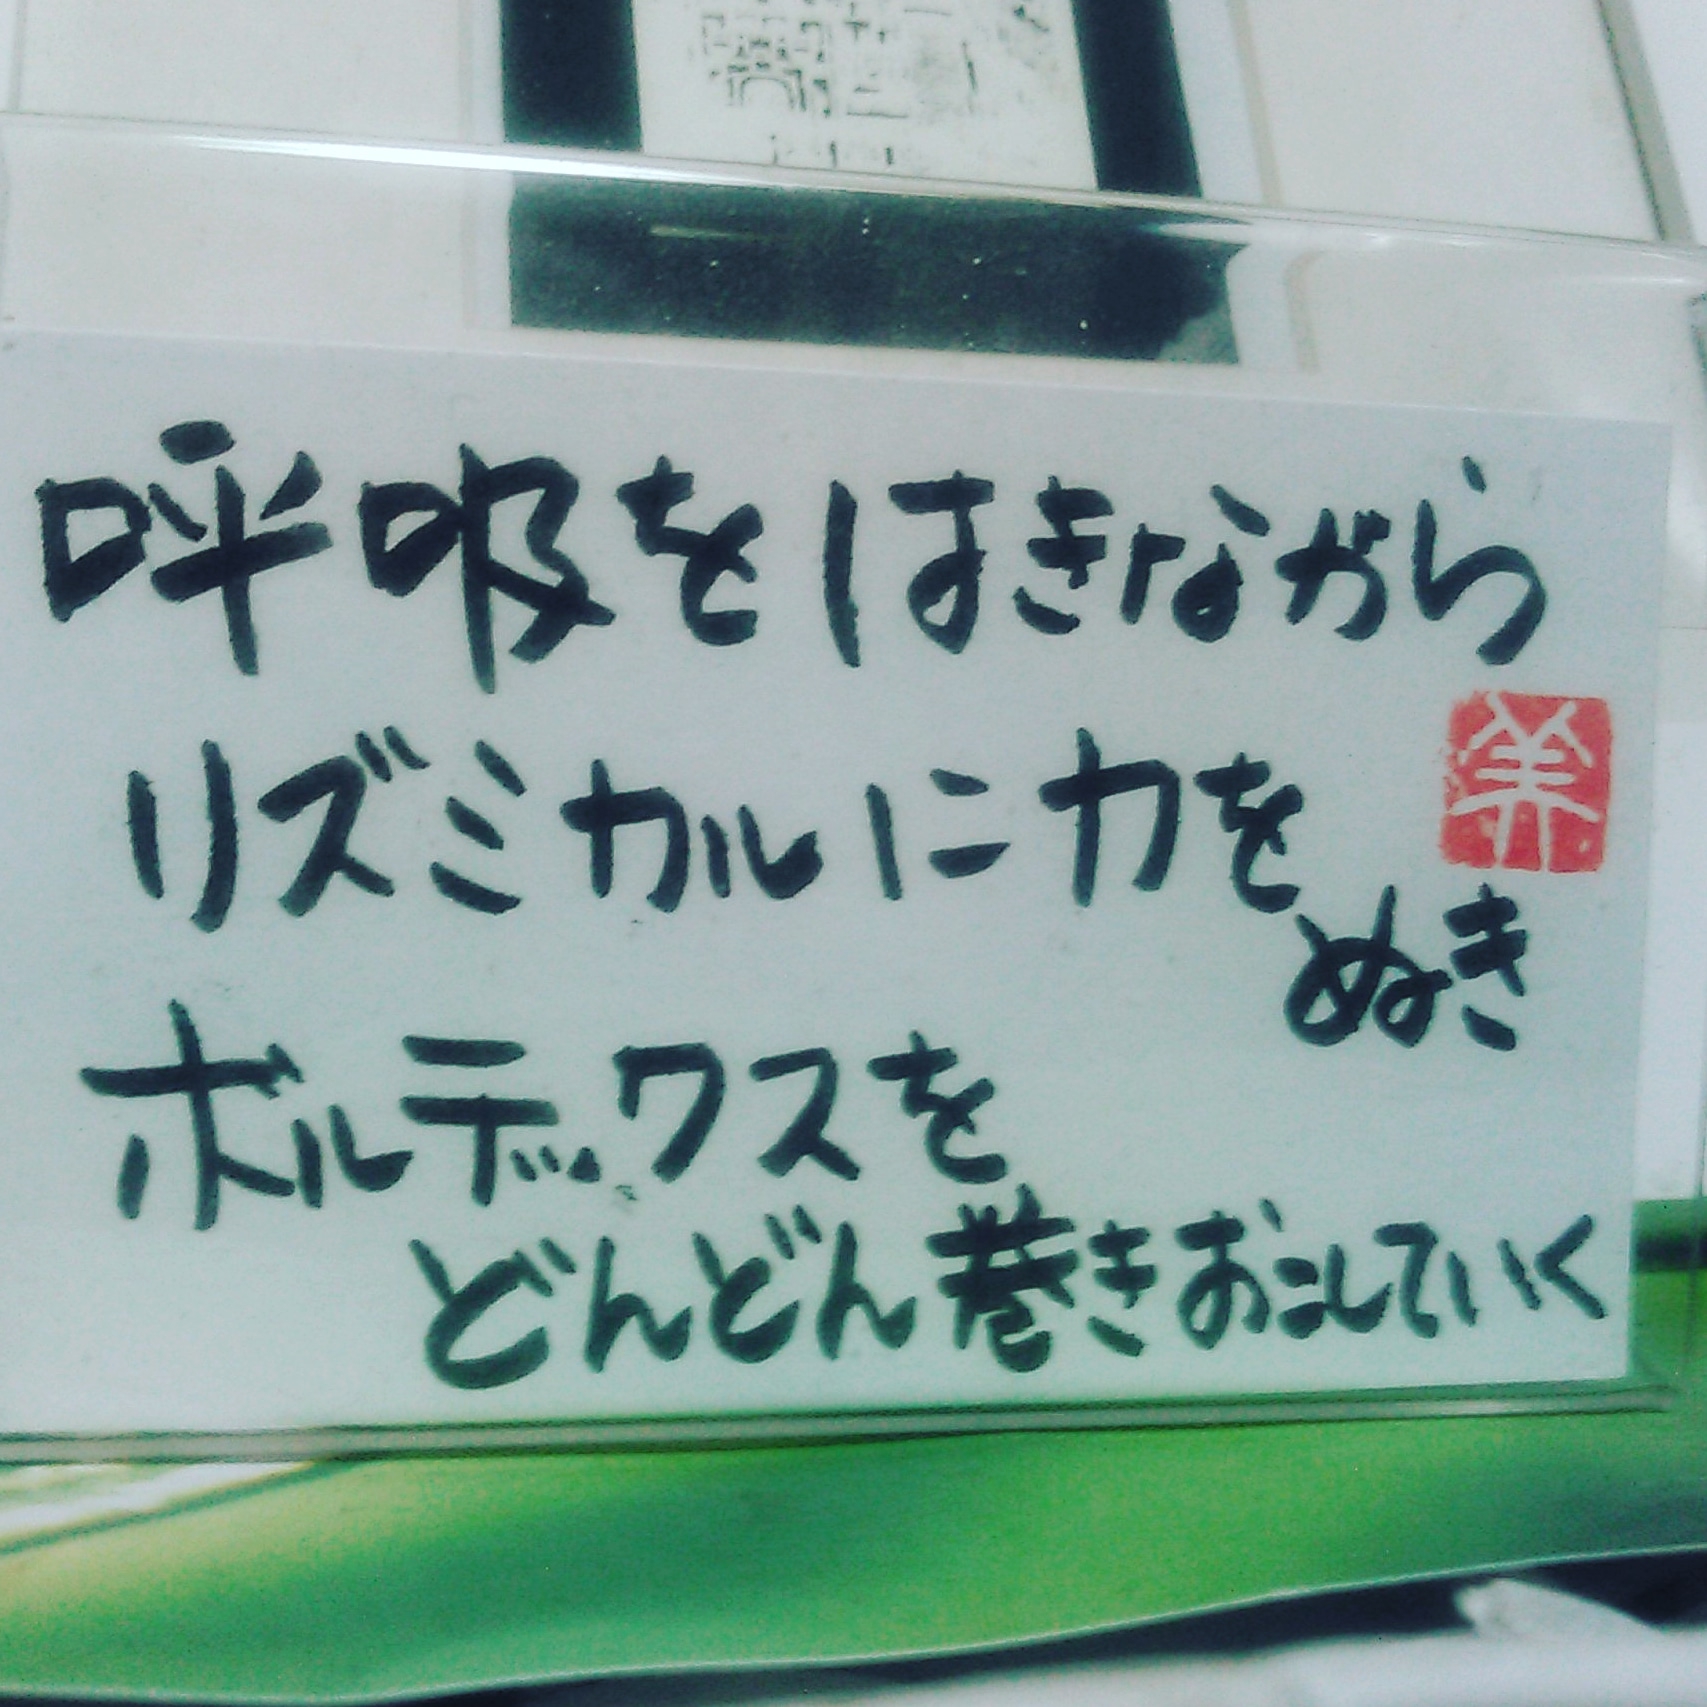 呼吸をはきながら
リズミカルに力を
ぬき
ボルテックスを
どんどん巻きおこしていく